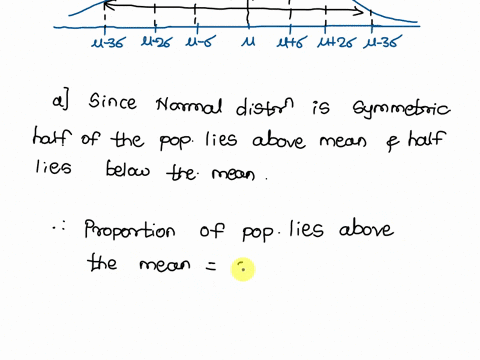 μ-3σ μ-2σ μ-σ μ μ+σ μ+2σ μ-3σ
a] Since Normal distrⁿ is symmetric
half of the pop. lies above mean & half
lies below the mean.
∴ Proportion of pop. lies above
the mean =